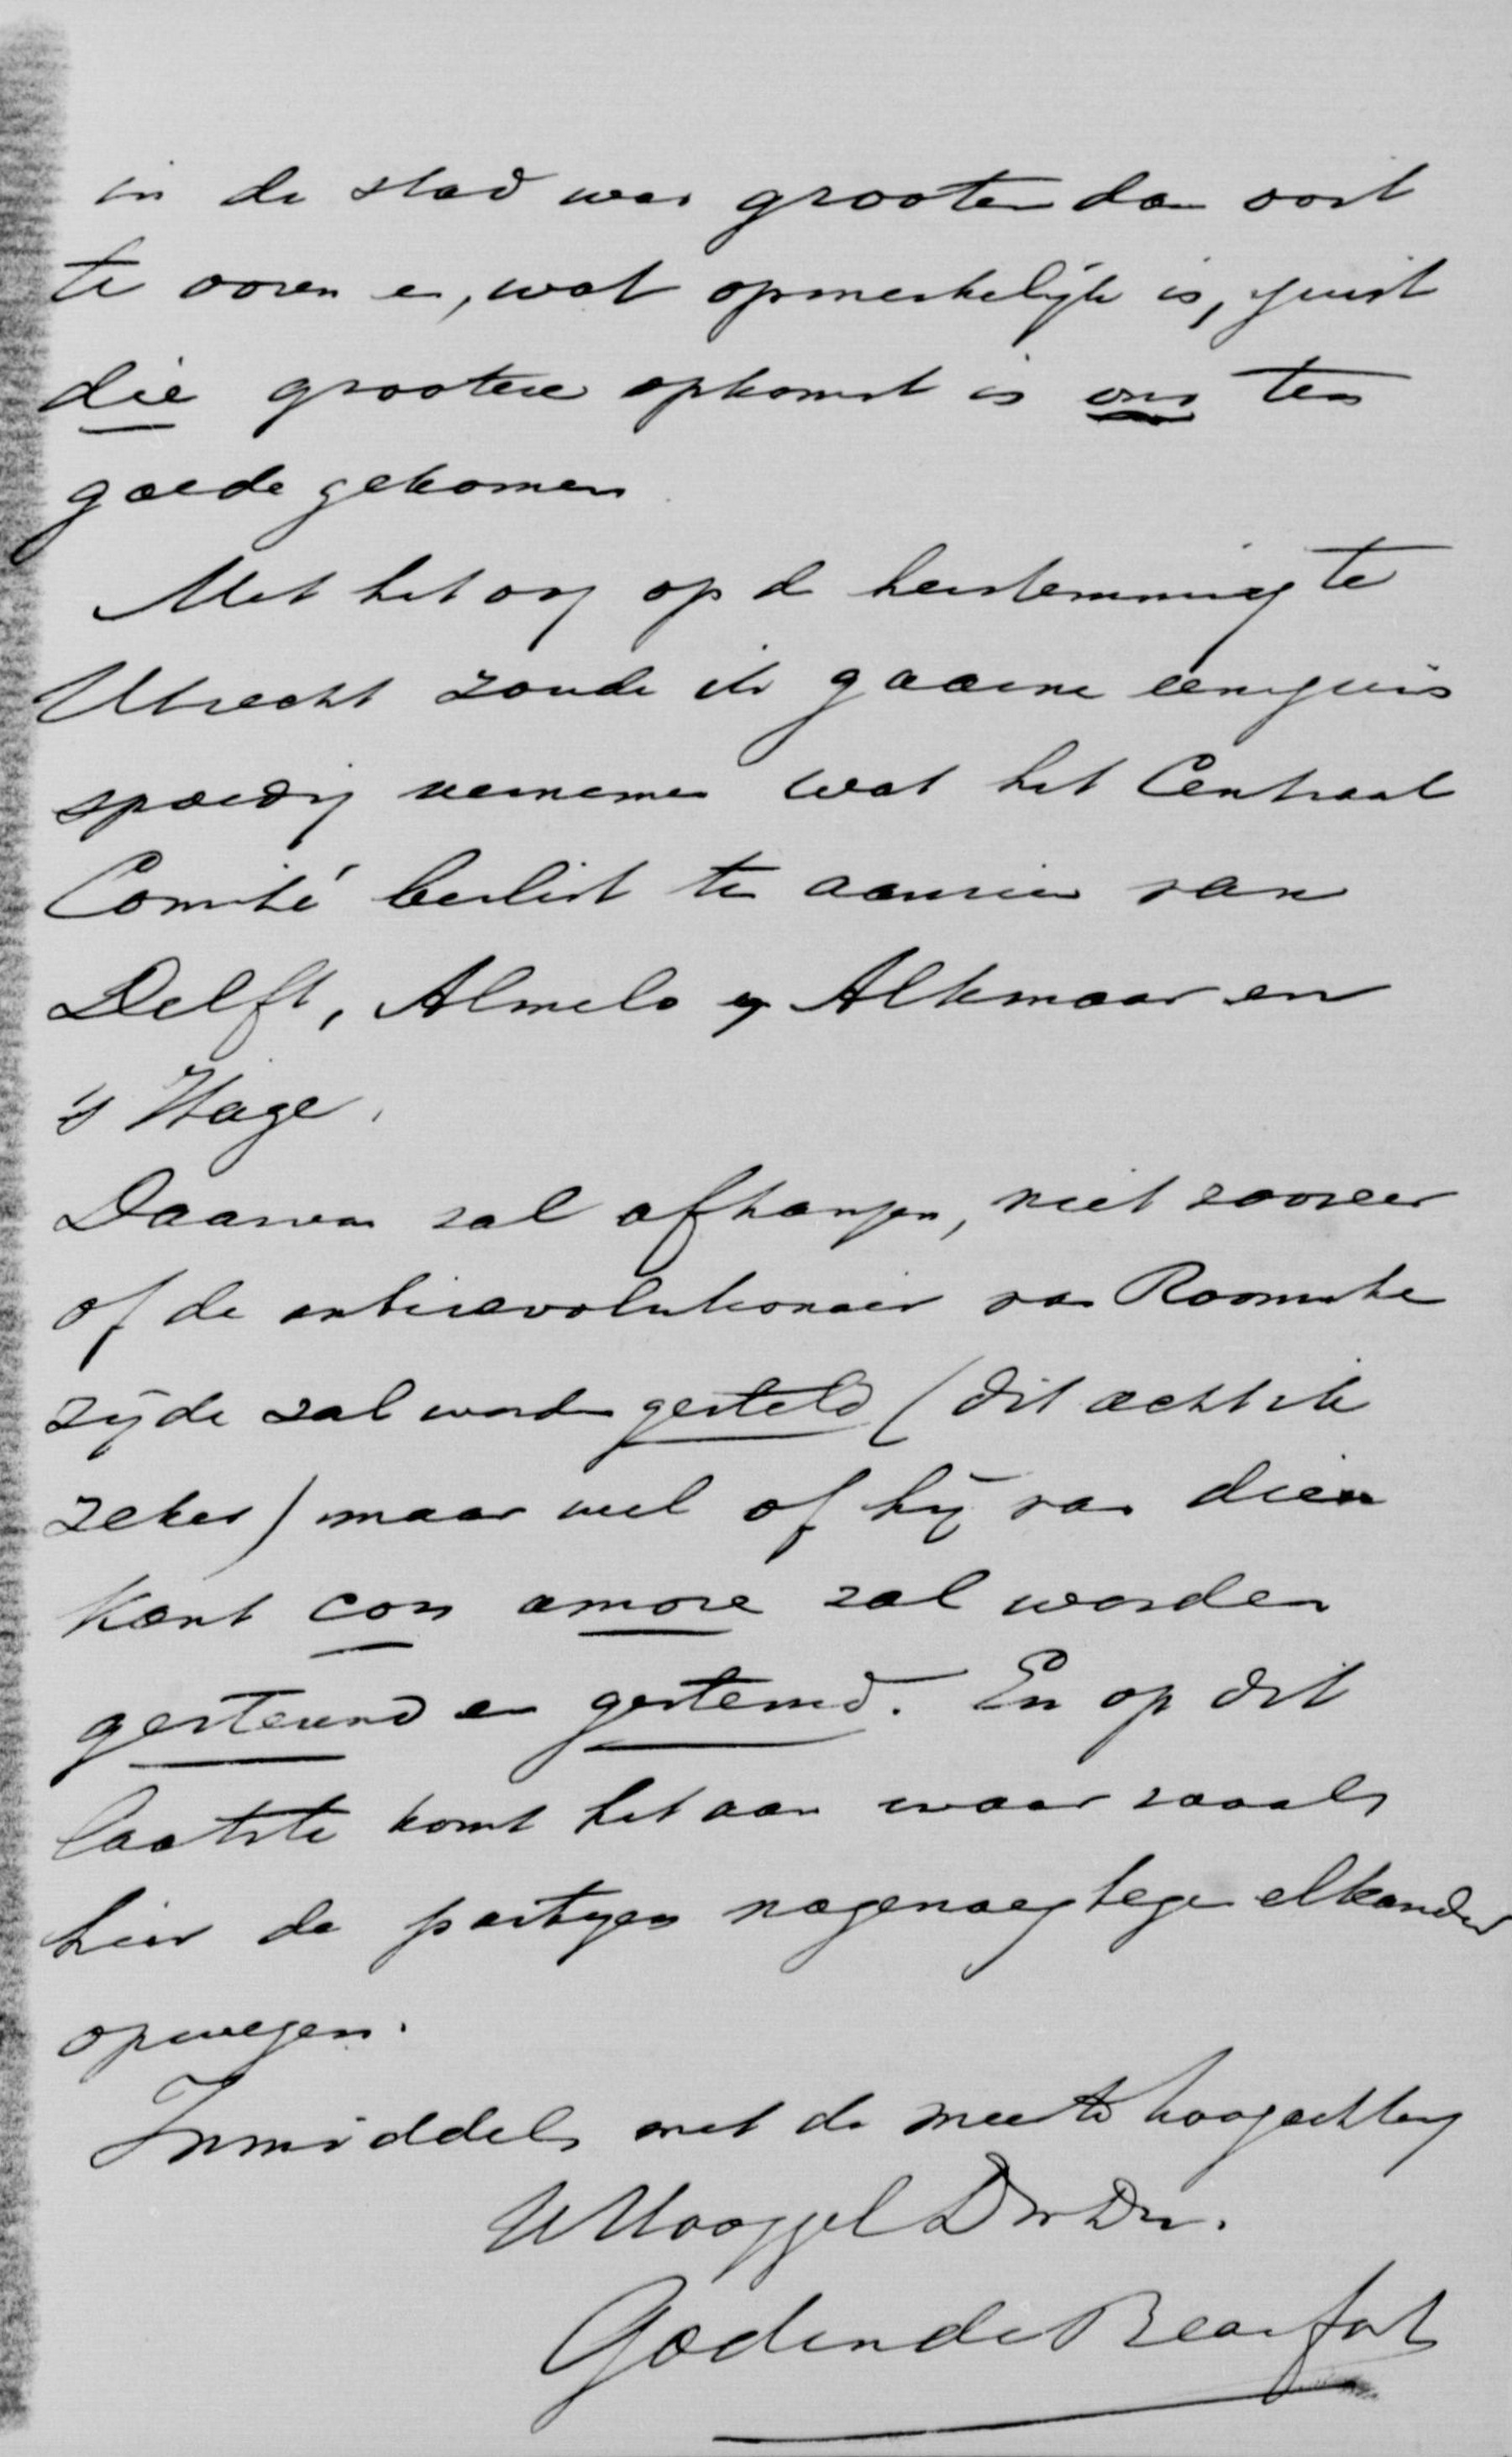 in de stad was grooter dan ooit
te voren en, wat opmerkelijk is, juist
die grootere opkomst is ons ten
goede gekomen
Met het oog op de herstemming te
Utrecht zoude ik gaarne eenigzins
spoedig vernemen wat het Centraal
Comité beslist ten aanzien van
Delft, Almelo Alkmaar en
's Hage.
Daarvan zal afhangen, niet zoozeer
of de antirevolutionair van Roomsche
zijde zal worden gesteld (dit acht ik
zeker) maar wel of hij van dien
kant con amore zal worden
gesteund en gestemd. En op dit
laatste komt het aan waar zooals
hier de partijen nagenoeg tegen elkander
opwegen.
Inmiddels met de meeste hoogachting
UHooggel Dw Dr.
Godin de Beaufort